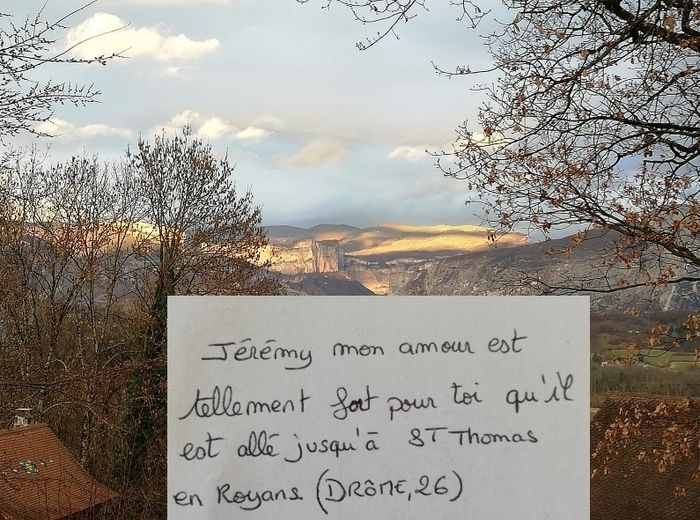 Jérémy mon amour est
tellement fort pour toi qu'il
est allé jusqu'à ST Thomas
en Royans (DRÔME, 26)